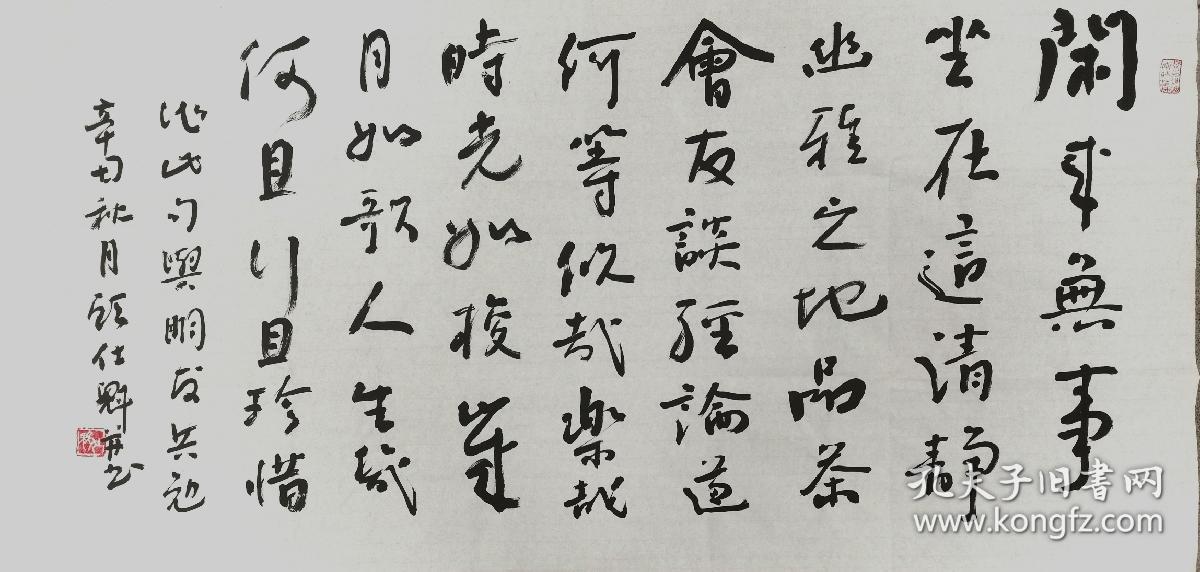 閑来無事
坐在這清靜
幽雅之地品茶
會友談經論道
何等似哉樂哉
時光如梭歲
月如歌人生幾
何且行且珍惜
作此句與朋友共勉
辛丑秋月 仕魁并书
孔夫子旧书网
www.kongfz.com